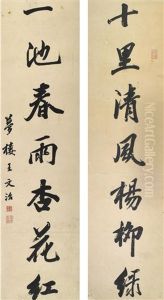 十里清風楊柳綠
一池春雨杏花紅
夢樓王文治
NiceArtGallery.com